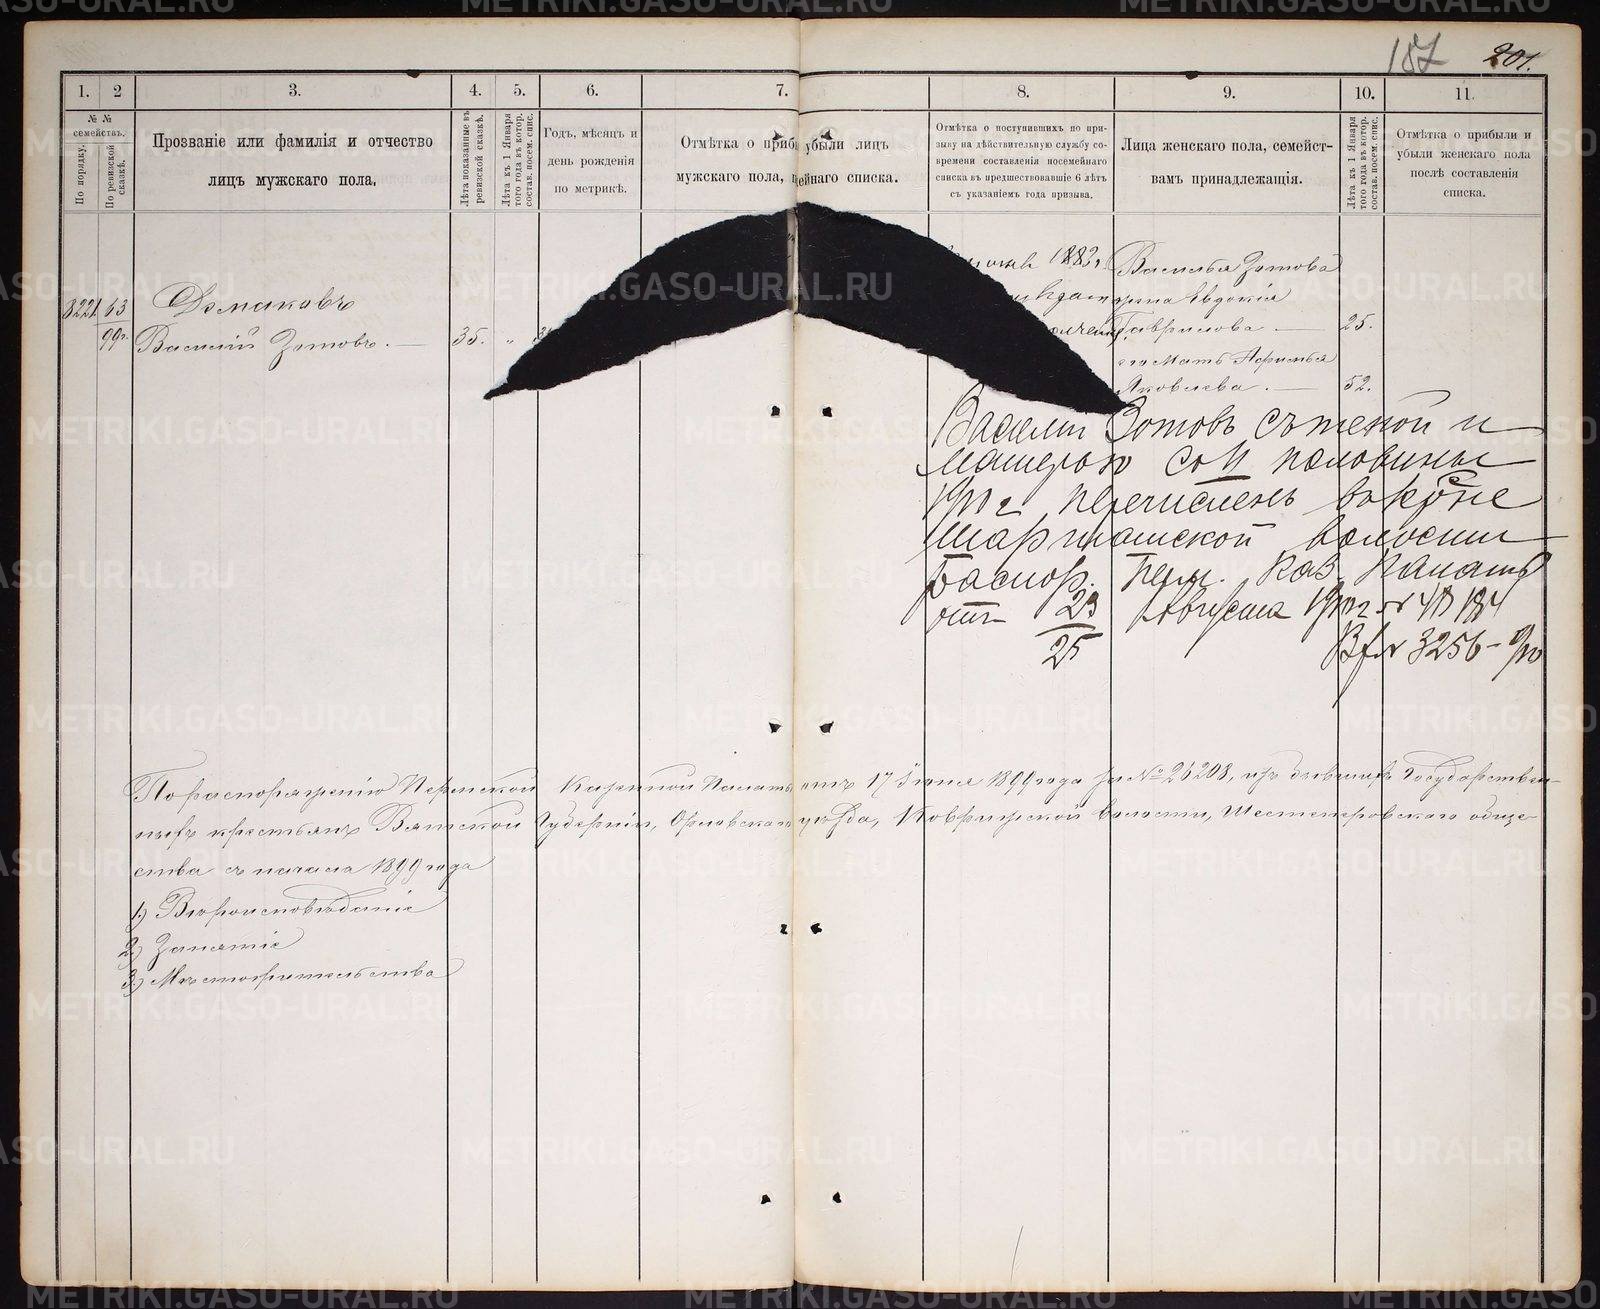 187 201.
1. 2 3. 4. 5. 6. 7. 8. 9. 10. 11.
№ № семействъ.
По порядку.
По ревизской сказкѣ.
Прозваніе или фамилія и отчество
лицъ мужскаго пола.
Лѣта показанные въ ревизской сказкѣ.
Лѣта къ 1 Января того года въ котор. состав. посем. спис.
Годъ, мѣсяцъ и
день рожденія
по метрикѣ.
Отмѣтка о приб убыли лицъ
мужскаго пола, ейнаго списка.
Отмѣтка о поступившихъ по при-
зыву на дѣйствительную службу со-
времени составленія посемейнаго
списка въ предшествовавшіе 6 лѣтъ
съ указаніемъ года призыва.
Лица женскаго пола, семейст-
вамъ принадлежащія.
Лѣта къ 1 Января того года въ котор. состав. посем. спис.
Отмѣтка о прибыли и
убыли женскаго пола
послѣ составленія
списка.
1882 г.
Василья Зотова
жена Евдокія
Гаврилова. — 25.
его Мать
Яковлева. — 52.
3221 63
99г.
Василій Зотовъ. — 35. "
Василій Зотовъ съ женой и
матерью со II половины
1910 г. перечисленъ въ кр-не
Шарташской волости
распор. Перм. Каз. Палаты
отъ 23/25 Августа 1910 г. №
В. № 3256 - 910
По распоряженію Пермской Казенной Палаты отъ 17 Іюня 1899 года за № 26208, изъ бывшихъ Государствен-
ныхъ крестьянъ Вятской Губерніи, Орловскаго уѣзда, Ковризской волости, Шестеперовскаго обще-
ства съ начала 1899 года
1) Вѣроисповѣданіе
2) Занятіе
3) Мѣстожительство
METRIKI.GASO-URAL.RU